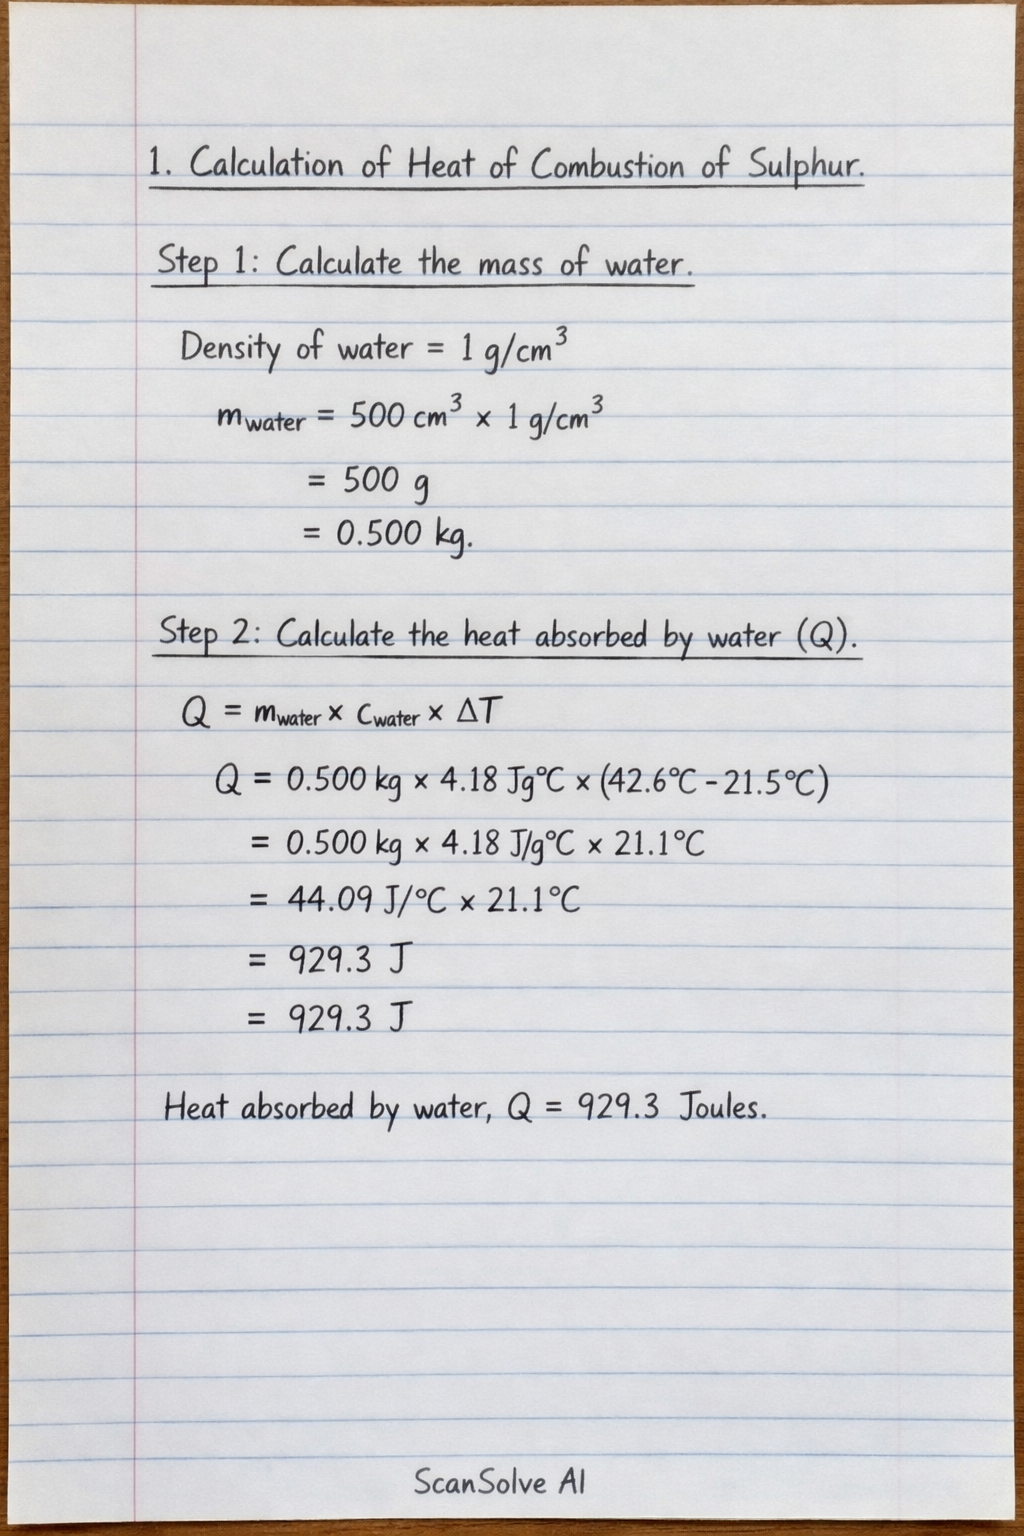 1. Calculation of Heat of Combustion of Sulphur.
Step 1: Calculate the mass of water.
Density of water = 1 g/cm³
mwater = 500 cm³ × 1 g/cm³
= 500 g
= 0.500 kg.
Step 2: Calculate the heat absorbed by water (Q).
Q = mwater × Cwater × ΔT
Q = 0.500 kg × 4.18 Jg°C × (42.6°C - 21.5°C)
= 0.500 kg × 4.18 J/g°C × 21.1°C
= 44.09 J/°C × 21.1°C
= 929.3 J
= 929.3 J
Heat absorbed by water, Q = 929.3 Joules.
ScanSolve AI